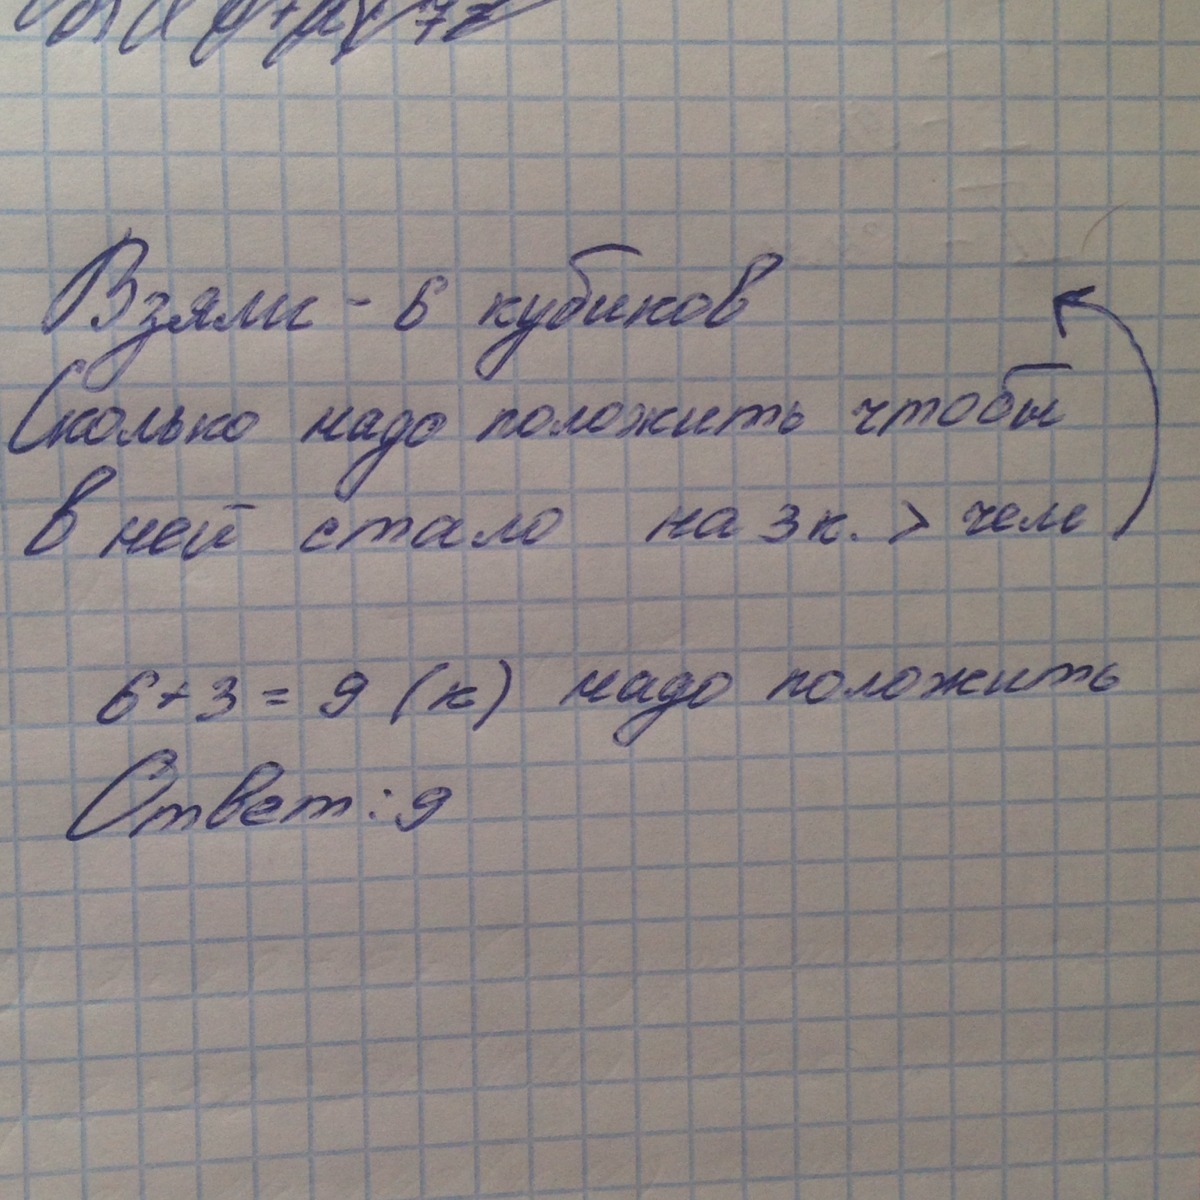 Взяли - 6 кубиков
Сколько надо положить чтобы
в ней стало на 3 к. > чем
6 + 3 = 9 (к) надо положить
Ответ: 9